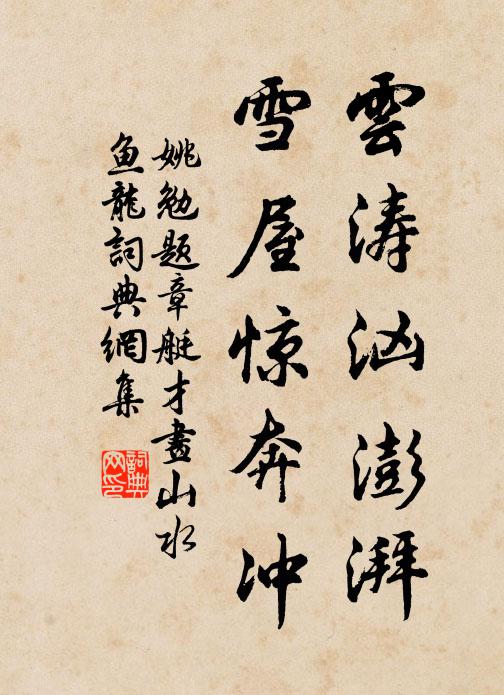 雲涛汹澎湃
雪屋惊奔冲
姚勉题章艇才畫山水
鱼龍詞典網集
詞典网印